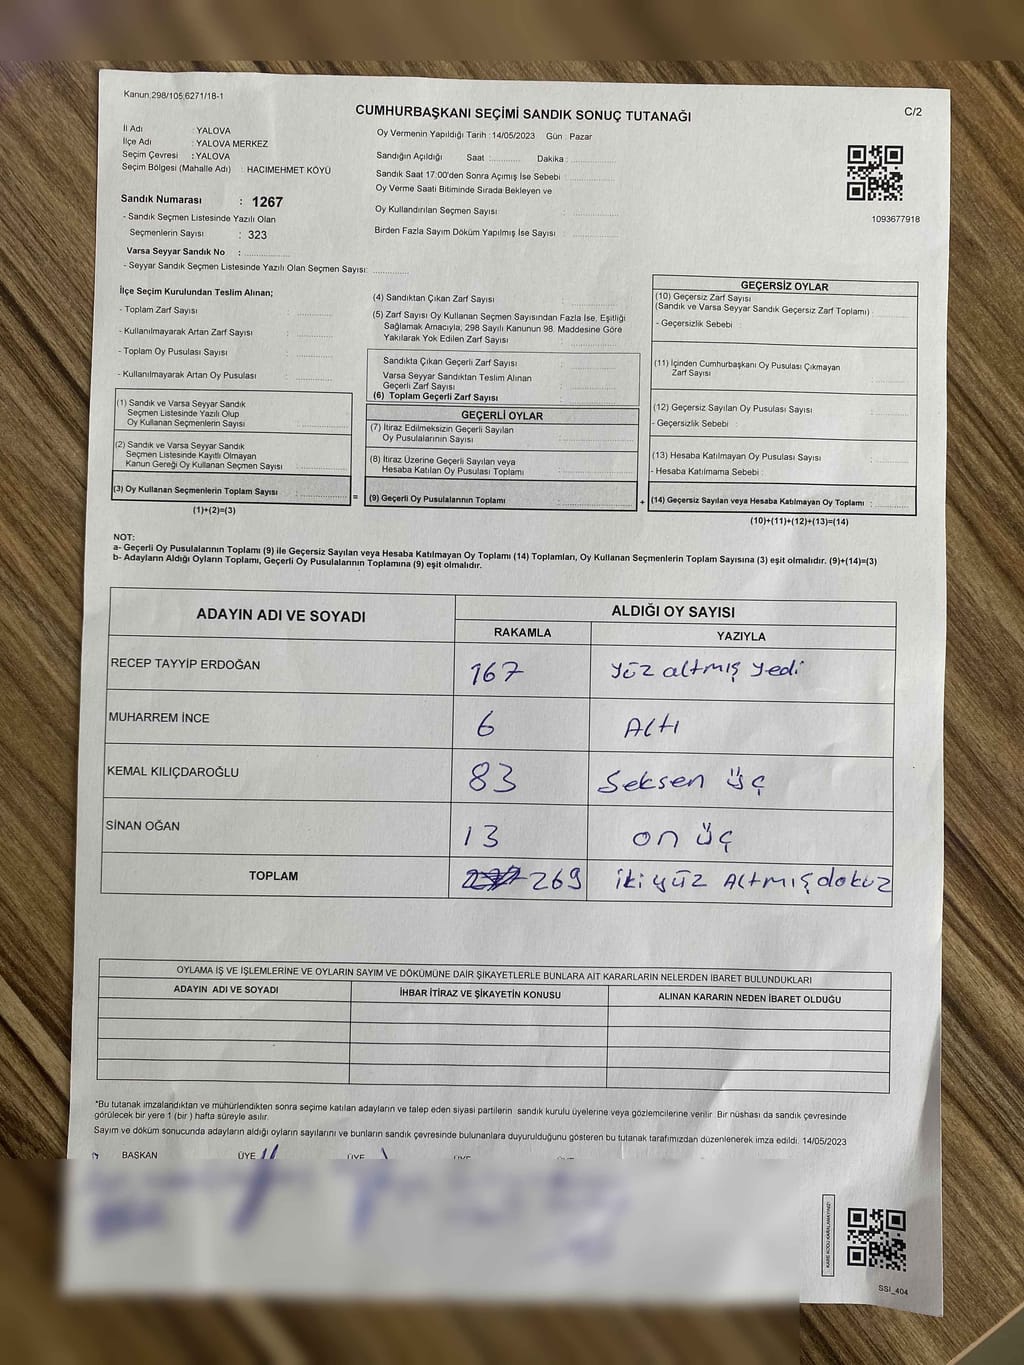 Kanun:298/105 6271/18-1
CUMHURBAŞKANI SEÇİMİ SANDIK SONUÇ TUTANAĞI
C/2
İl Adı : YALOVA
İlçe Adı : YALOVA MERKEZ
Seçim Çevresi : YALOVA
Seçim Bölgesi (Mahalle Adı) : HACIMEHMET KÖYÜ
Oy Vermenin Yapıldığı Tarih : 14/05/2023 Gün : Pazar
Sandığın Açıldığı Saat :.......... Dakika :..............
Sandık Saat 17:00'den Sonra Açımış İse Sebebi :..............
Oy Verme Saati Bitiminde Sırada Bekleyen ve
Oy Kullandırılan Seçmen Sayısı :..............
Birden Fazla Sayım Döküm Yapılmış İse Sayısı :..............
1093677918
Sandık Numarası : 1267
- Sandık Seçmen Listesinde Yazılı Olan
Seçmenlerin Sayısı : 323
Varsa Seyyar Sandık No :..............
- Seyyar Sandık Seçmen Listesinde Yazılı Olan Seçmen Sayısı: ............
İlçe Seçim Kurulundan Teslim Alınan;
- Toplam Zarf Sayısı :............
- Kullanılmayarak Artan Zarf Sayısı :............
- Toplam Oy Pusulası Sayısı :............
- Kullanılmayarak Artan Oy Pusulası :............
(1) Sandık ve Varsa Seyyar Sandık
Seçmen Listesinde Yazılı Olup
Oy Kullanan Seçmenlerin Sayısı :............
(2) Sandık ve Varsa Seyyar Sandık
Seçmen Listesinde Kayıtlı Olmayan
Kanun Gereği Oy Kullanan Seçmen Sayısı :............
(3) Oy Kullanan Seçmenlerin Toplam Sayısı :............
(1)+(2)=(3)
=
(4) Sandıktan Çıkan Zarf Sayısı :............
(5) Zarf Sayısı Oy Kullanan Seçmen Sayısından Fazla İse, Eşitliği
Sağlamak Amacıyla; 298 Sayılı Kanunun 98. Maddesine Göre
Yakılarak Yok Edilen Zarf Sayısı :............
Sandıkta Çıkan Geçerli Zarf Sayısı :............
Varsa Seyyar Sandıktan Teslim Alınan
Geçerli Zarf Sayısı :............
(6) Toplam Geçerli Zarf Sayısı :............
GEÇERLİ OYLAR
(7) İtiraz Edilmeksizin Geçerli Sayılan
Oy Pusulalarının Sayısı :............
(8) İtiraz Üzerine Geçerli Sayılan veya
Hesaba Katılan Oy Pusulası Toplamı :............
(9) Geçerli Oy Pusulalarının Toplamı :............
+
GEÇERSİZ OYLAR
(10) Geçersiz Zarf Sayısı
(Sandık ve Varsa Seyyar Sandık Geçersiz Zarf Toplamı) :............
- Geçersizlik Sebebi :
(11) İçinden Cumhurbaşkanı Oy Pusulası Çıkmayan
Zarf Sayısı :............
(12) Geçersiz Sayılan Oy Pusulası Sayısı :............
- Geçersizlik Sebebi :
(13) Hesaba Katılmayan Oy Pusulası Sayısı :............
- Hesaba Katılmama Sebebi :
(14) Geçersiz Sayılan veya Hesaba Katılmayan Oy Toplamı :............
(10)+(11)+(12)+(13)=(14)
NOT:
a- Geçerli Oy Pusulalarının Toplamı (9) ile Geçersiz Sayılan veya Hesaba Katılmayan Oy Toplamı (14) Toplamları, Oy Kullanan Seçmenlerin Toplam Sayısına (3) eşit olmalıdır. (9)+(14)=(3)
b- Adayların Aldığı Oyların Toplamı, Geçerli Oy Pusulalarının Toplamına (9) eşit olmalıdır.
ADAYIN ADI VE SOYADI
ALDIĞI OY SAYISI
RAKAMLA YAZIYLA
RECEP TAYYİP ERDOĞAN 167 yüz altmış yedi
MUHARREM İNCE 6 Altı
KEMAL KILIÇDAROĞLU 83 Seksen üç
SİNAN OĞAN 13 on üç
TOPLAM 269 iki yüz Altmış dokuz
OYLAMA İŞ VE İŞLEMLERİNE VE OYLARIN SAYIM VE DÖKÜMÜNE DAİR ŞİKAYETLERLE BUNLARA AİT KARARLARIN NELERDEN İBARET BULUNDUKLARI
ADAYIN ADI VE SOYADI İHBAR İTİRAZ VE ŞİKAYETİN KONUSU ALINAN KARARIN NEDEN İBARET OLDUĞU
*Bu tutanak imzalandıktan ve mühürlendikten sonra seçime katılan adayların ve talep eden siyasi partilerin sandık kurulu üyelerine veya gözlemcilerine verilir. Bir nüshası da sandık çevresinde
görülecek bir yere 1 (bir ) hafta süreyle asılır.
Sayım ve döküm sonucunda adayların aldığı oyların sayılarını ve bunların sandık çevresinde bulunanlara duyurulduğunu gösteren bu tutanak tarafımızdan düzenlenerek imza edildi. 14/05/2023
BAŞKAN ÜYE ÜYE
KARE KODU KARALAMAYINIZ!
SSI_404